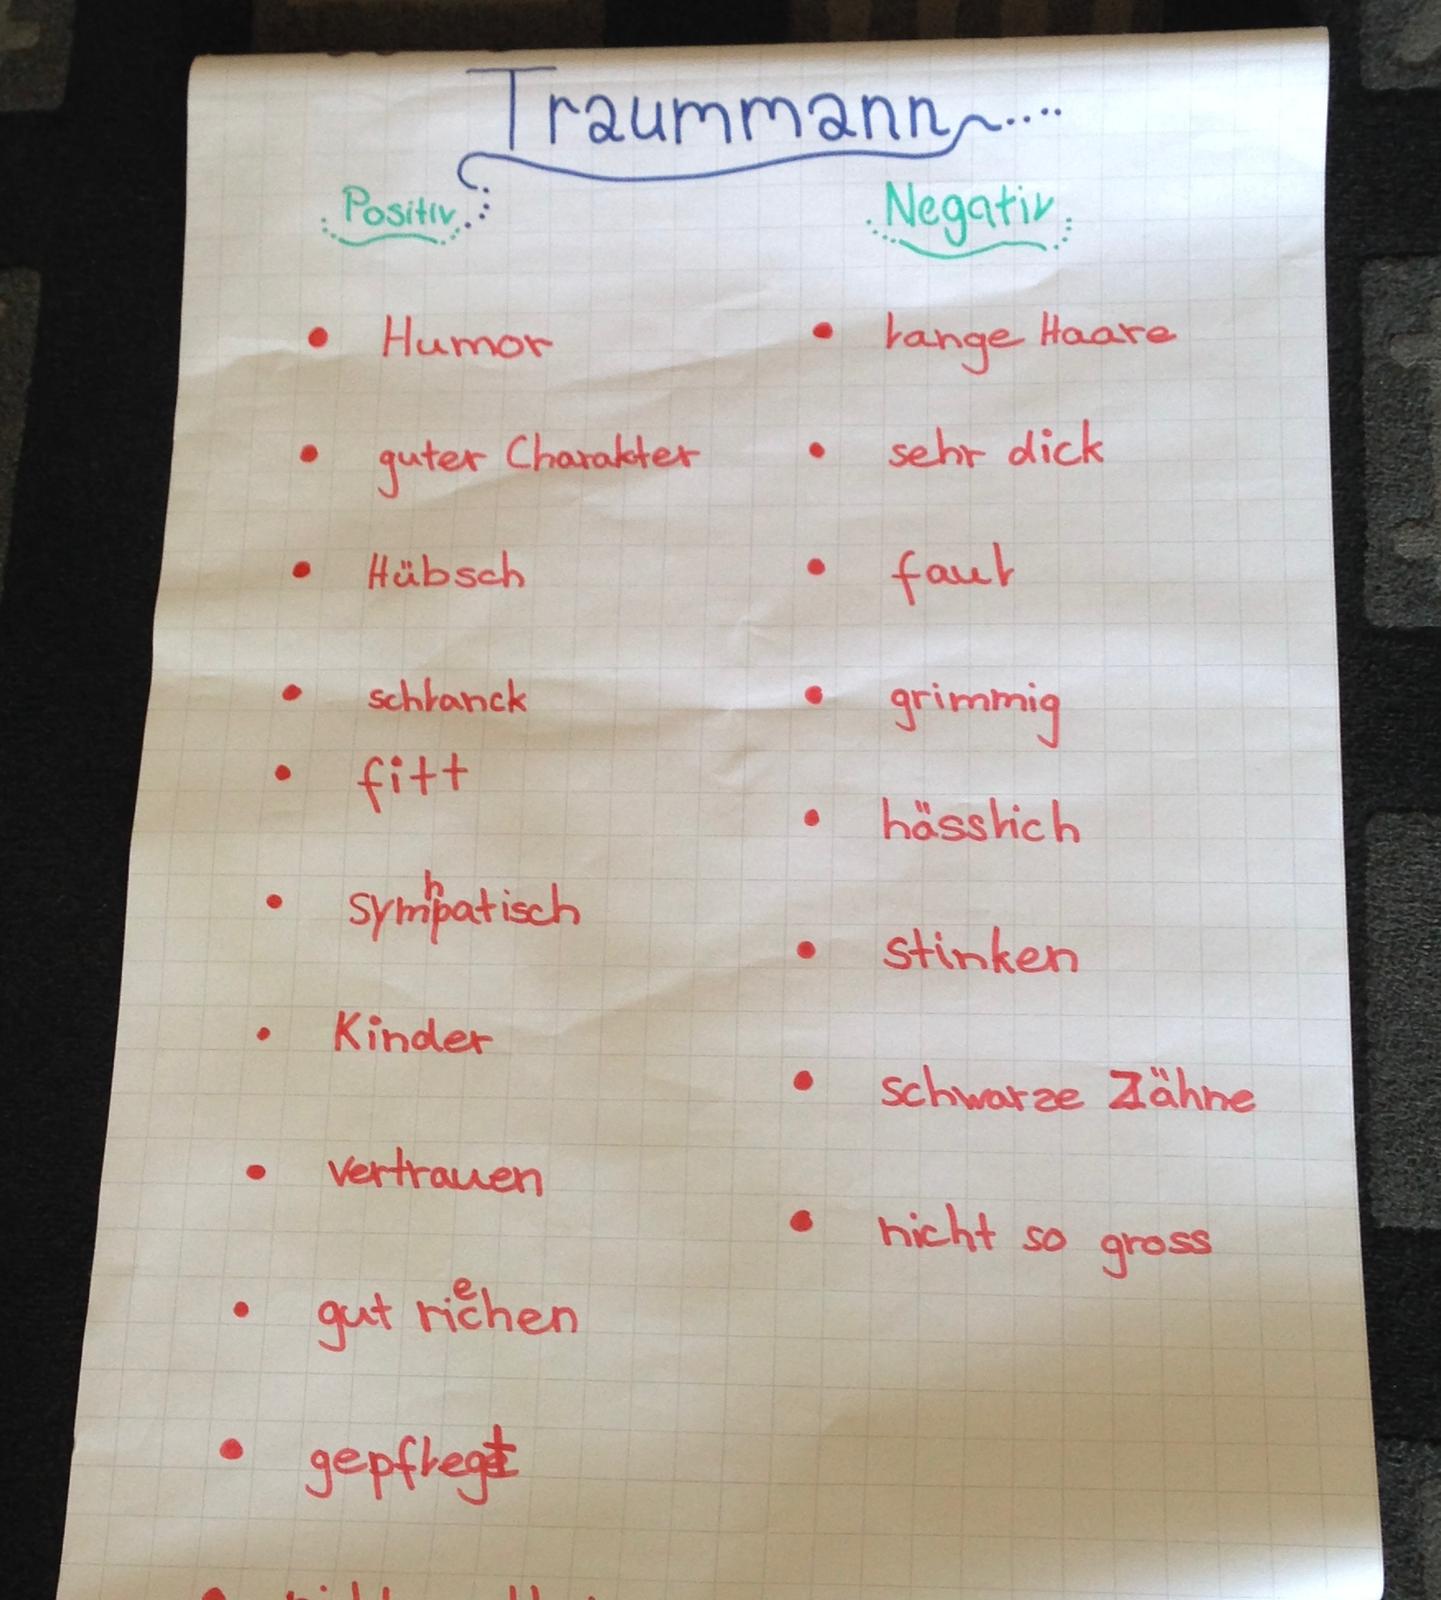 Traummann
Positiv
Negativ
• Humor
• lange Haare
• guter Charakter
• sehr dick
• Hübsch
• faul
• schlanck
• grimmig
• fitt
• hässlich
• symphatisch
• stinken
• Kinder
• schwarze Zähne
• vertrauen
• nicht so gross
• gut riechen
• gepflegt